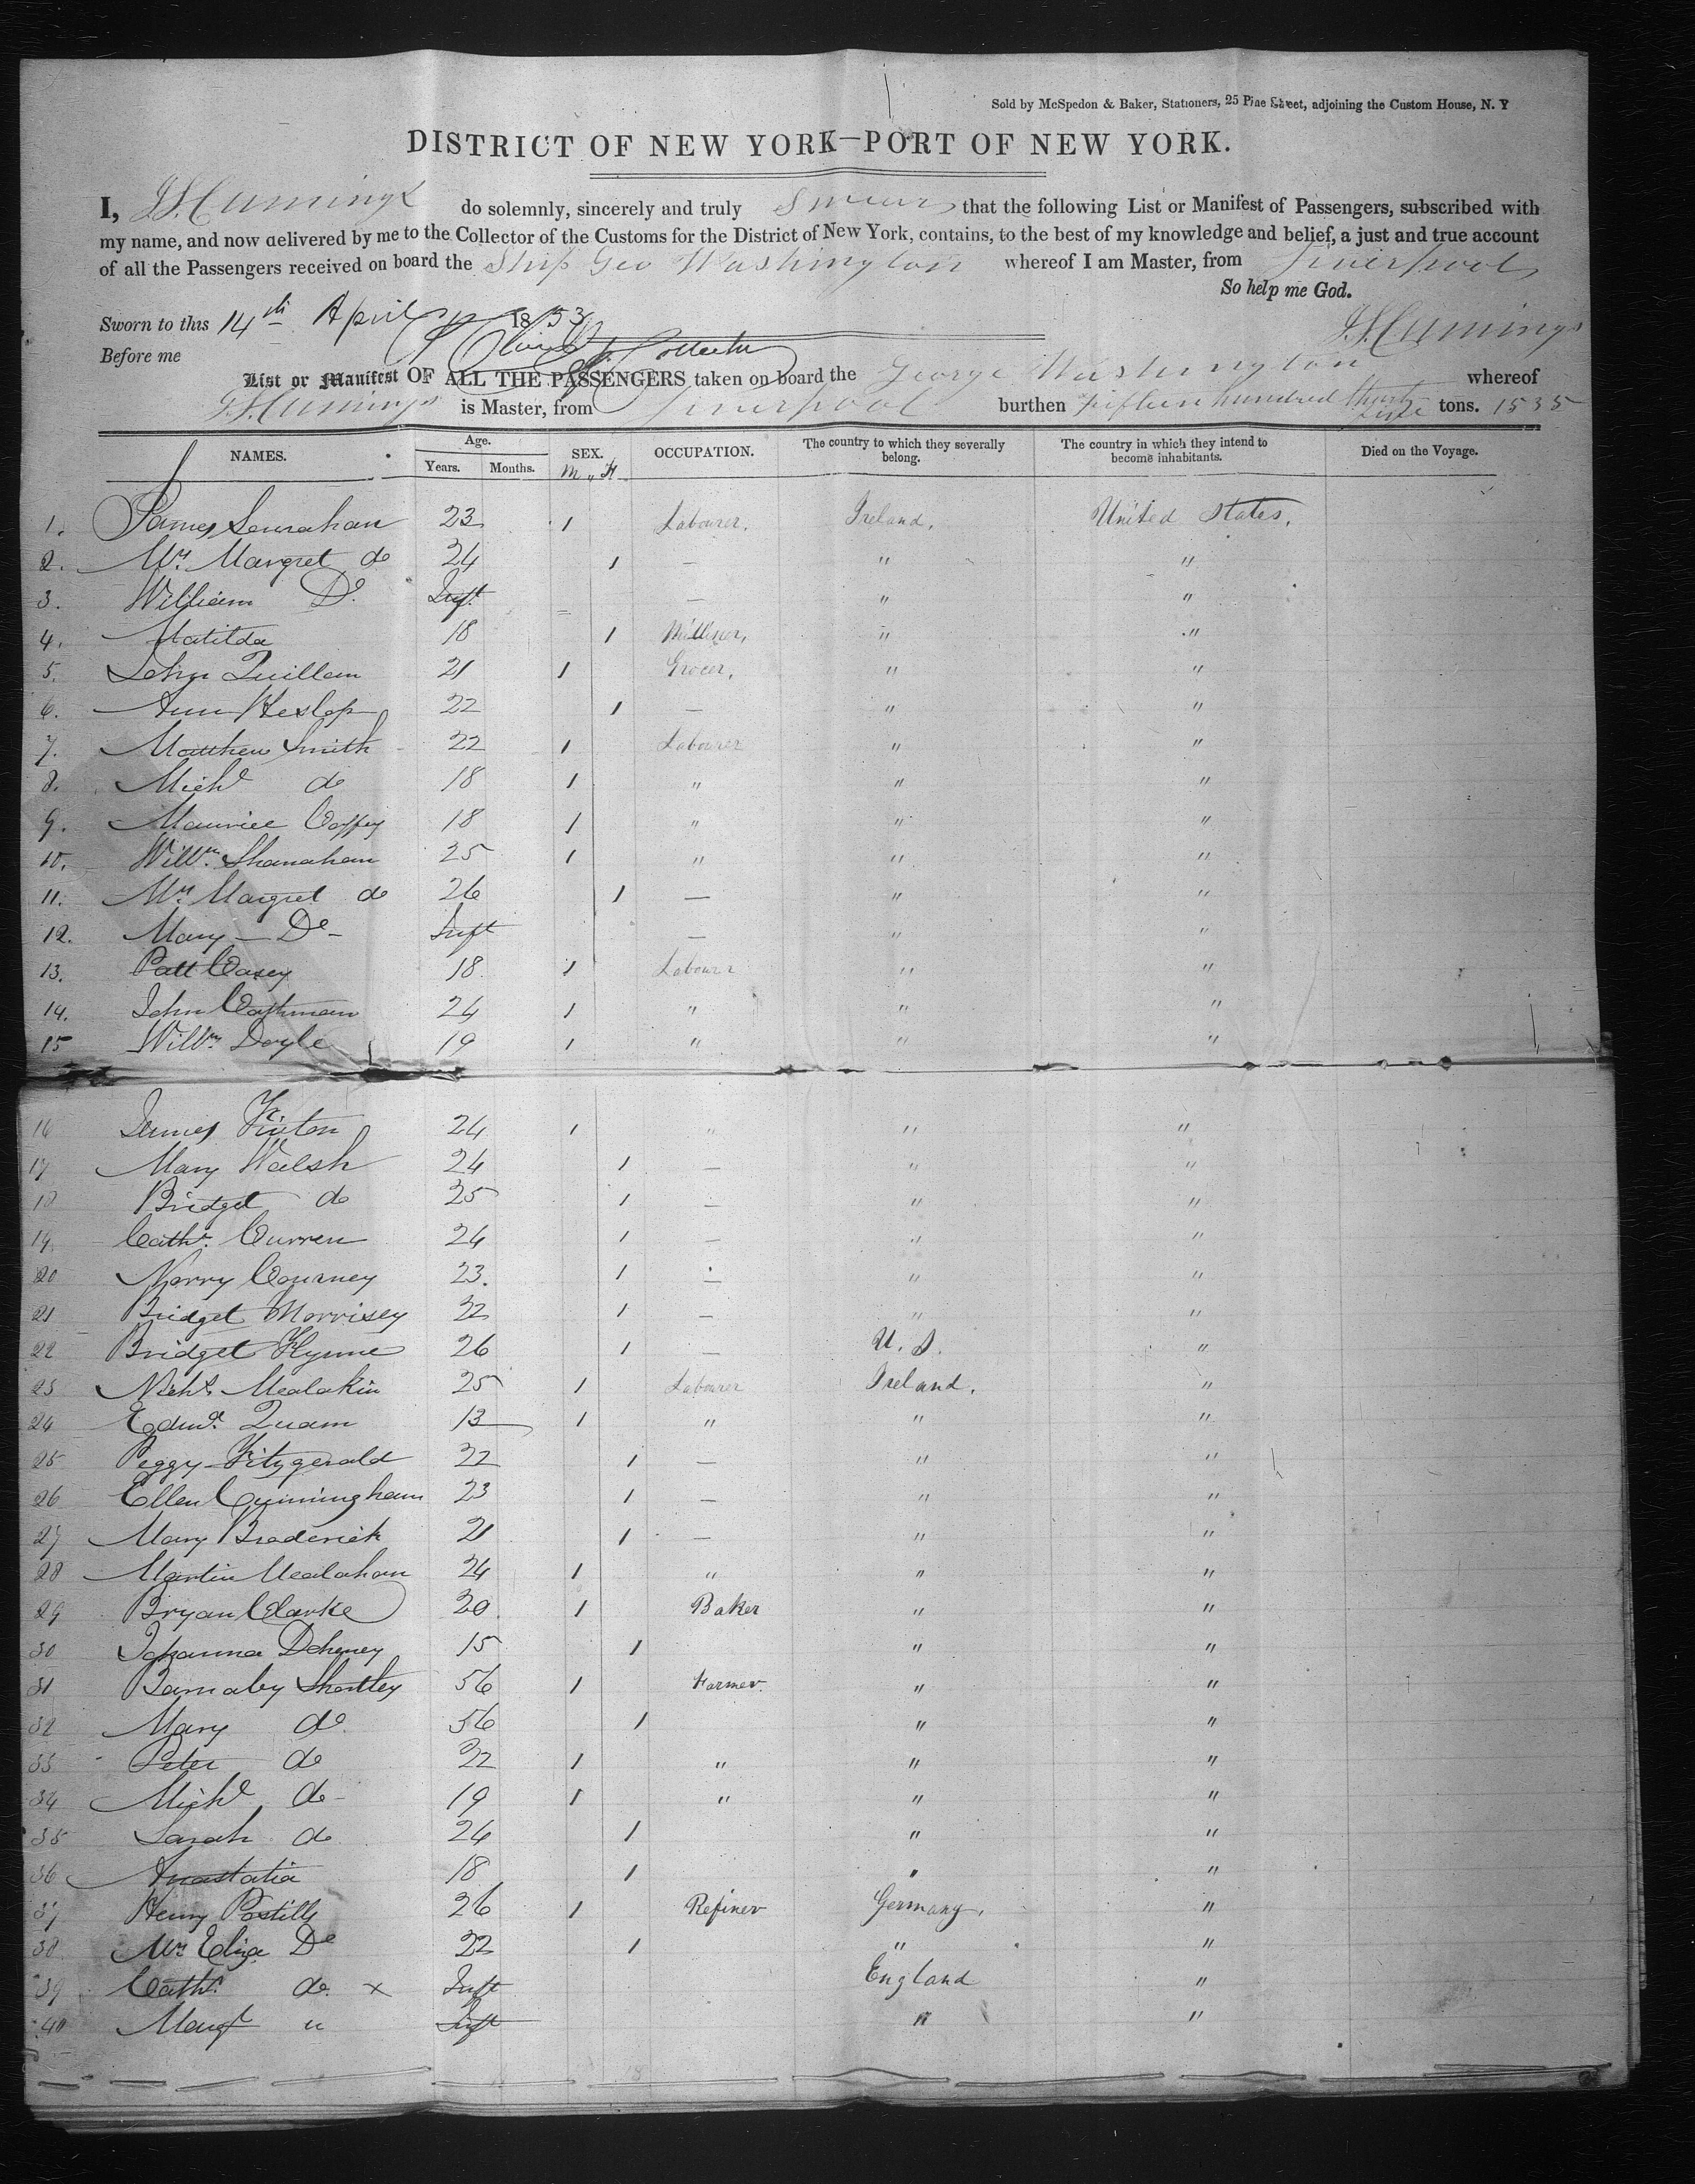 Sold by McSpedon & Baker, Stationers, 25 Pine Street, adjoining the Custom House, N. Y
DISTRICT OF NEW YORK—PORT OF NEW YORK.
I, J.S. Cumings do solemnly, sincerely and truly Swear that the following List or Manifest of Passengers, subscribed with
my name, and now delivered by me to the Collector of the Customs for the District of New York, contains, to the best of my knowledge and belief, a just and true account
of all the Passengers received on board the Ship Geo Washington whereof I am Master, from Liverpool
So help me God.
Sworn to this 14th April 1853 J.S. Cumings
Before me
List or Manifest OF ALL THE PASSENGERS taken on board the George Washington whereof
J.S. Cumings is Master, from Liverpool burthen fifteen hundred thirty five tons. 1535
NAMES. Age. Years. Months. SEX. M " F OCCUPATION. The country to which they severally belong. The country in which they intend to become inhabitants. Died on the Voyage.
1. James 23 1 Labourer. Ireland. United States.
2. Mrs Margret do 24 1 — " "
3. William Do. Inft — " "
4. Matilda 18 1 Milliner, " "
5. John Quillan 21 1 Grocer, " "
6. Ann Heslop 22 1 — " "
7. Matthew Smith 22 1 Labourer " "
8. Michl do 18 1 " " "
9. Maurice Coffey 18 1 " " "
10. Willm Shanahan 25 1 " " "
11. Mrs Margret do 26 1 — " "
12. Mary — Do — Inft — " "
13. Patt Casey 18 1 Labourer " "
14. John Cashman 24 1 " " "
15 Willm Doyle 19 1 " " "
16 James Finton 24 1 " " "
17 Mary Walsh 24 1 — " "
18 Bridget do 25 1 — " "
19 Cathe. Curren 24 1 — " "
20 Norry Courney 23. 1 — " "
21 Bridget Morrisey 22 1 — " "
22 Bridget Flynne 26 1 — U. S. "
23 Michl. Mealakin 25 1 Labourer Ireland. "
24 Edmd. Quam 13 1 " " "
25 Peggy Fitzgerald 22 1 — " "
26 Ellen Cunningham 23 1 — " "
27 Mary Broderick 21 1 — " "
28 Martin Mealahan 24 1 " " "
29 Bryan Clarke 20 1 Baker " "
30 Johanna Deheney 15 1 " "
31 Barnaby Shortley 56 1 Farmer. " "
32 Mary do. 56 1 " "
33 Peter do 22 1 " " "
34 Michl do 19 1 " " "
35 Sarah do 24 1 " "
36 Anastatia 18 1 " "
37 Henry Postills 26 1 Refiner Germany. "
38 Mrs Eliza Do 22 1 " "
39 Cathe. do. x Inft England "
40 Margt " Inft " "